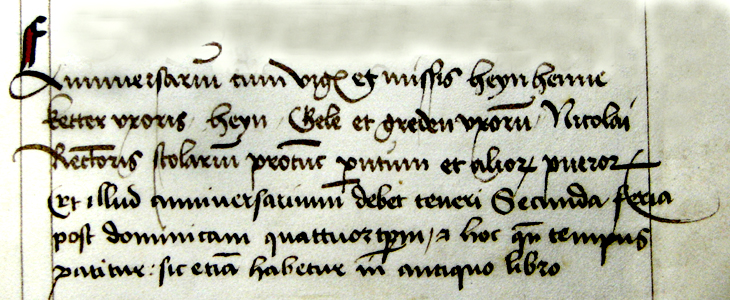 Anniversariū cum vigł et missis heyn henne
ketter vxoris heyn Gele et greden vxorū Nicolai
Rectoris scolariū protūc putium et alioꝝ pueroꝝ
Et illud anniversarium debet teneri Secunda feria
post dominicam quattuor tꝑm / ⁊ hoc qn̄ tempus
patitur : sic etiā habetur in antiquo libro